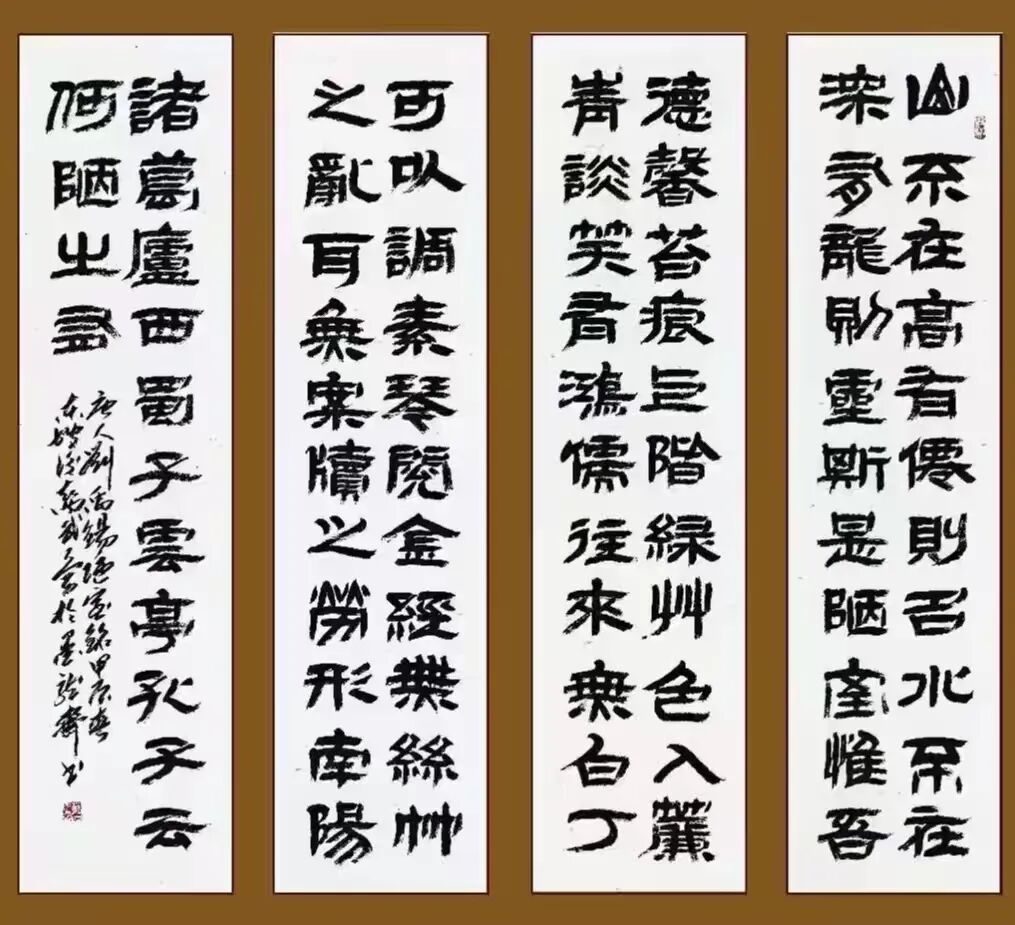 山不在高有僊則名水不在
深有龍則靈斯是陋室惟吾
德馨苔痕上階緑艸色入簾
青談笑有鴻儒往來無白丁
可以調素琴閱金經無絲竹
之亂耳無案牘之勞形南陽
諸葛廬西蜀子雲亭孔子云
何陋之有
唐人劉禹錫陋室銘甲辰春
東坡後裔於墨龍齋書